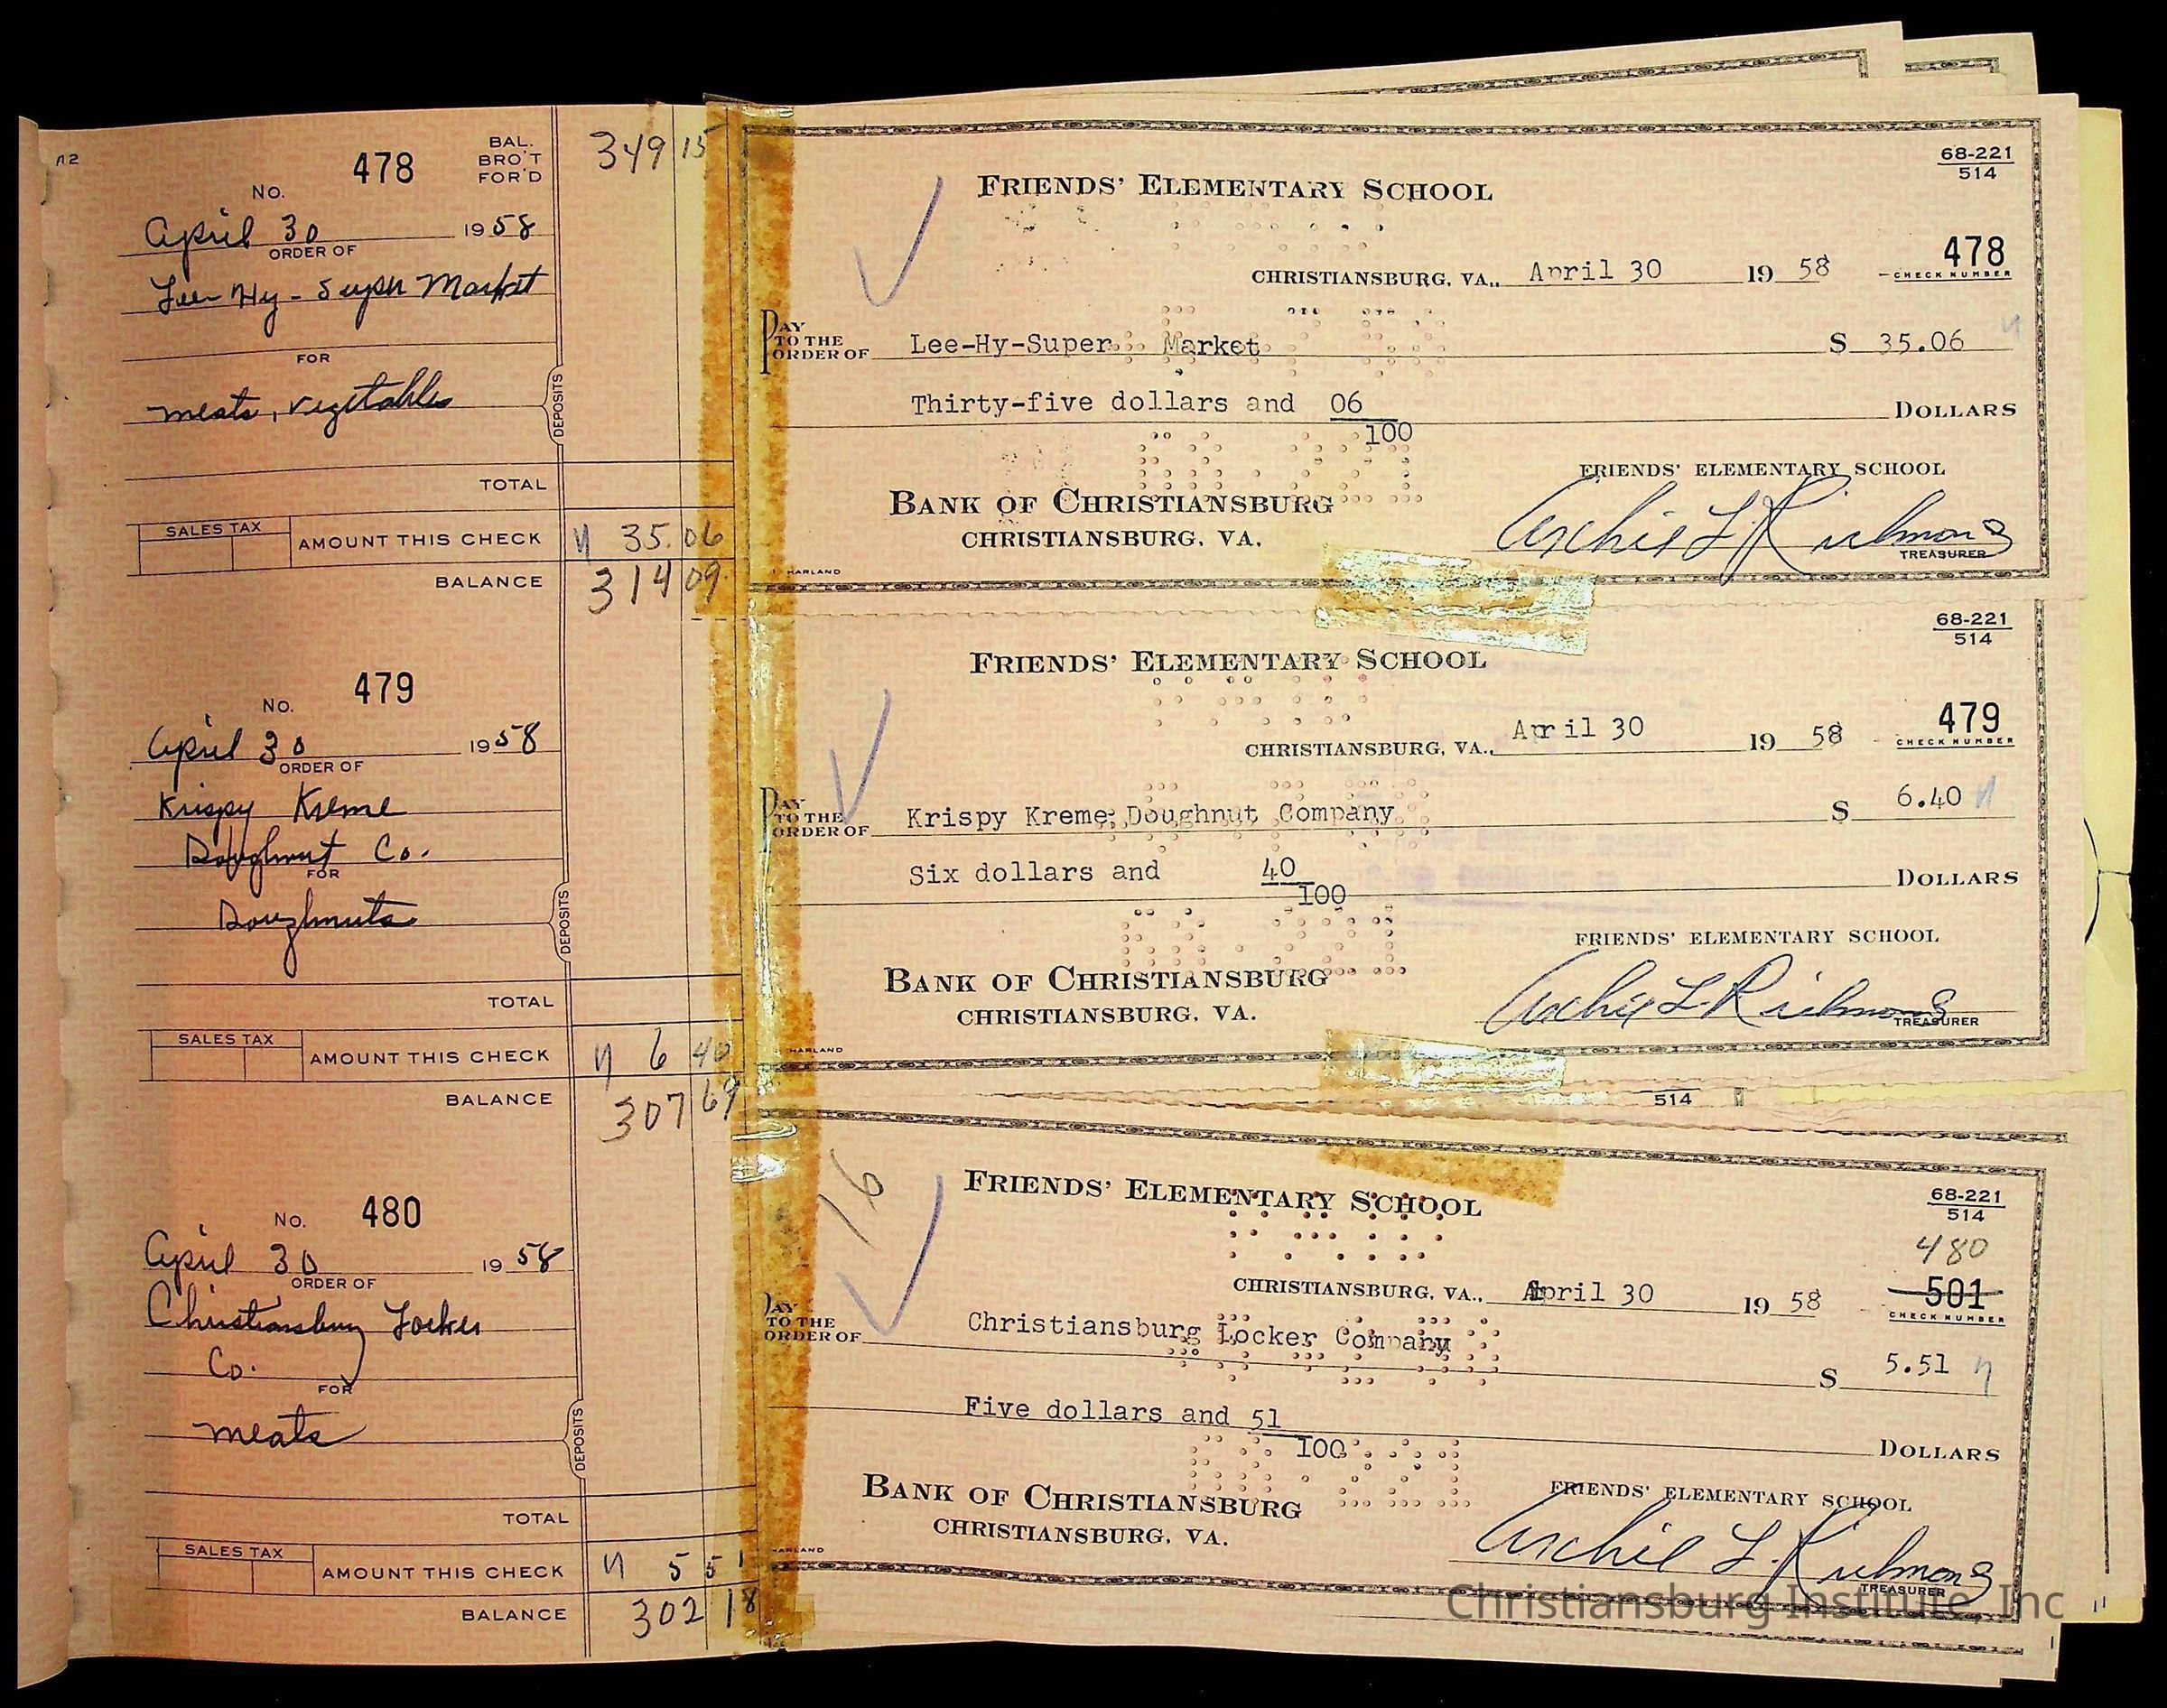 478
NO.
BAL.
BRO'T
FOR'D
349 15
April 30 1958
ORDER OF
Lee-Hy-Super Market
FOR
meats, vegetables
DEPOSITS
TOTAL
SALES TAX
AMOUNT THIS CHECK 35.06
BALANCE 314 09
68-221
514
FRIENDS' ELEMENTARY SCHOOL
478
CHECK NUMBER
CHRISTIANSBURG, VA., April 30 19 58
PAY
TO THE
ORDER OF Lee-Hy-Super Market $ 35.06
Thirty-five dollars and 06
100
DOLLARS
FRIENDS' ELEMENTARY SCHOOL
BANK OF CHRISTIANSBURG
CHRISTIANSBURG, VA.
Archie L Richmond
TREASURER
HARLAND
479
NO.
April 30 1958
ORDER OF
Krispy Kreme
Doughnut Co.
FOR
Doughnuts
DEPOSITS
TOTAL
SALES TAX
AMOUNT THIS CHECK 6 40
BALANCE 307 69
68-221
514
FRIENDS' ELEMENTARY SCHOOL
479
CHECK NUMBER
CHRISTIANSBURG, VA., April 30 19 58
PAY
TO THE
ORDER OF Krispy Kreme Doughnut Company $ 6.40
Six dollars and 40
100
DOLLARS
FRIENDS' ELEMENTARY SCHOOL
BANK OF CHRISTIANSBURG
CHRISTIANSBURG, VA.
Archie L Richmond
TREASURER
HARLAND
514
NO. 480
April 30 1958
ORDER OF
Christiansburg Locker
Co.
FOR
meats
DEPOSITS
TOTAL
SALES TAX
AMOUNT THIS CHECK 5 51
BALANCE 302 18
16
68-221
514
FRIENDS' ELEMENTARY SCHOOL
480
501
CHECK NUMBER
CHRISTIANSBURG, VA., April 30 19 58
PAY
TO THE
ORDER OF Christiansburg Locker Company
$ 5.51
Five dollars and 51
100
DOLLARS
FRIENDS' ELEMENTARY SCHOOL
BANK OF CHRISTIANSBURG
CHRISTIANSBURG, VA.
Archie L. Richmond
TREASURER
HARLAND
Christiansburg Institute, Inc